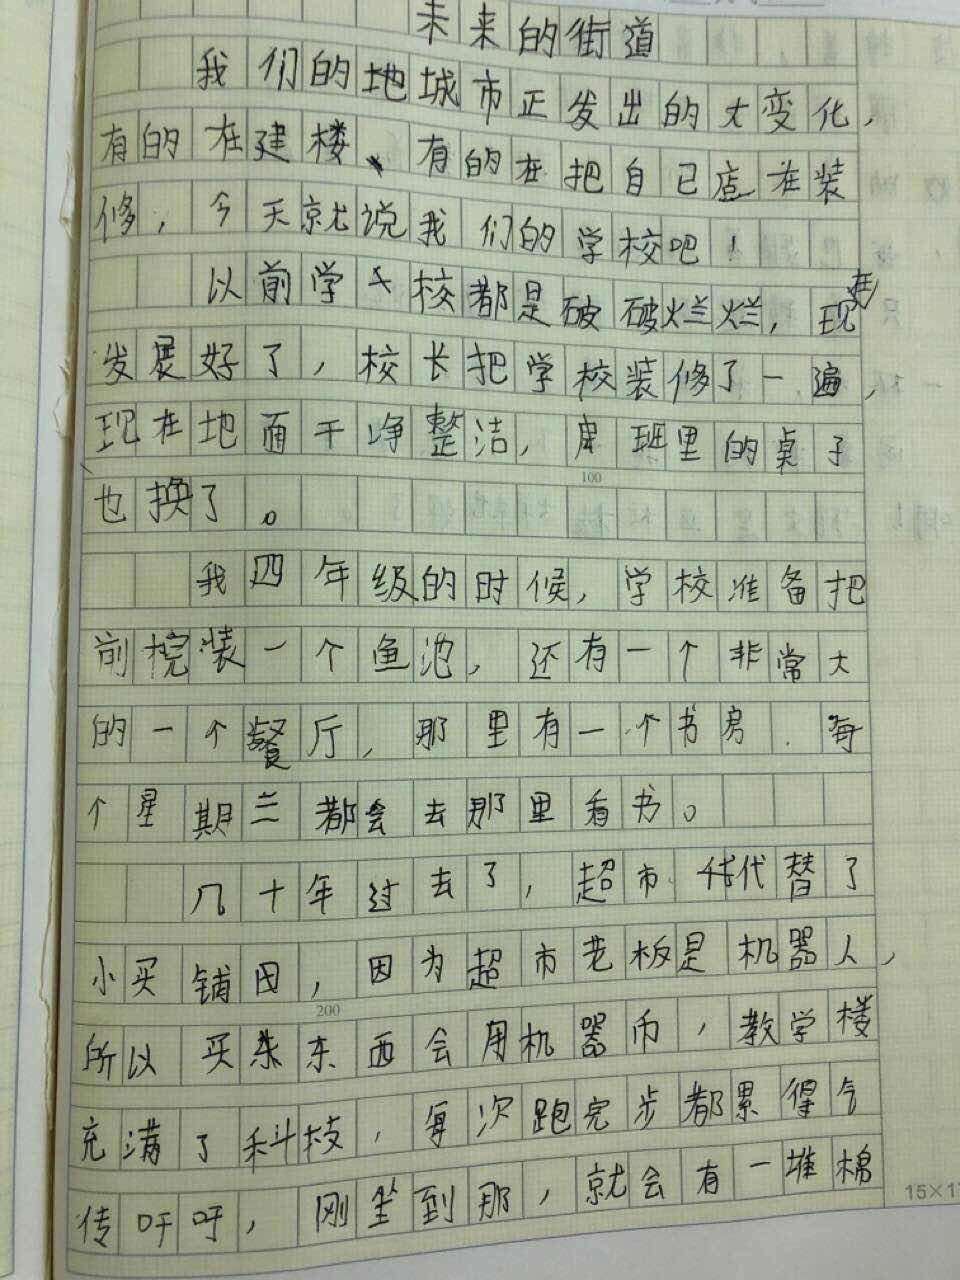 未来的街道
我们的地城市正发出的大变化,
有的在建楼、有的在把自己店在装
修,今天就说我们的学校吧!
以前学校都是破破烂烂,现在
发展好了,校长把学校装修了一遍,
现在地面干净整洁,班里的桌子
100
也换了。
我四年级的时候,学校准备把
前院装一个鱼池,还有一个非常大
的一个餐厅,那里有一个书房.每
个星期三都会去那里看书。
几十年过去了,超市代替了
小买铺,因为超市老板是机器人,
200
所以买东西会用机器币,教学楼
充满了科技,每次跑完步都累得气
传吁吁,刚坐到那,就会有一堆棉
15×1